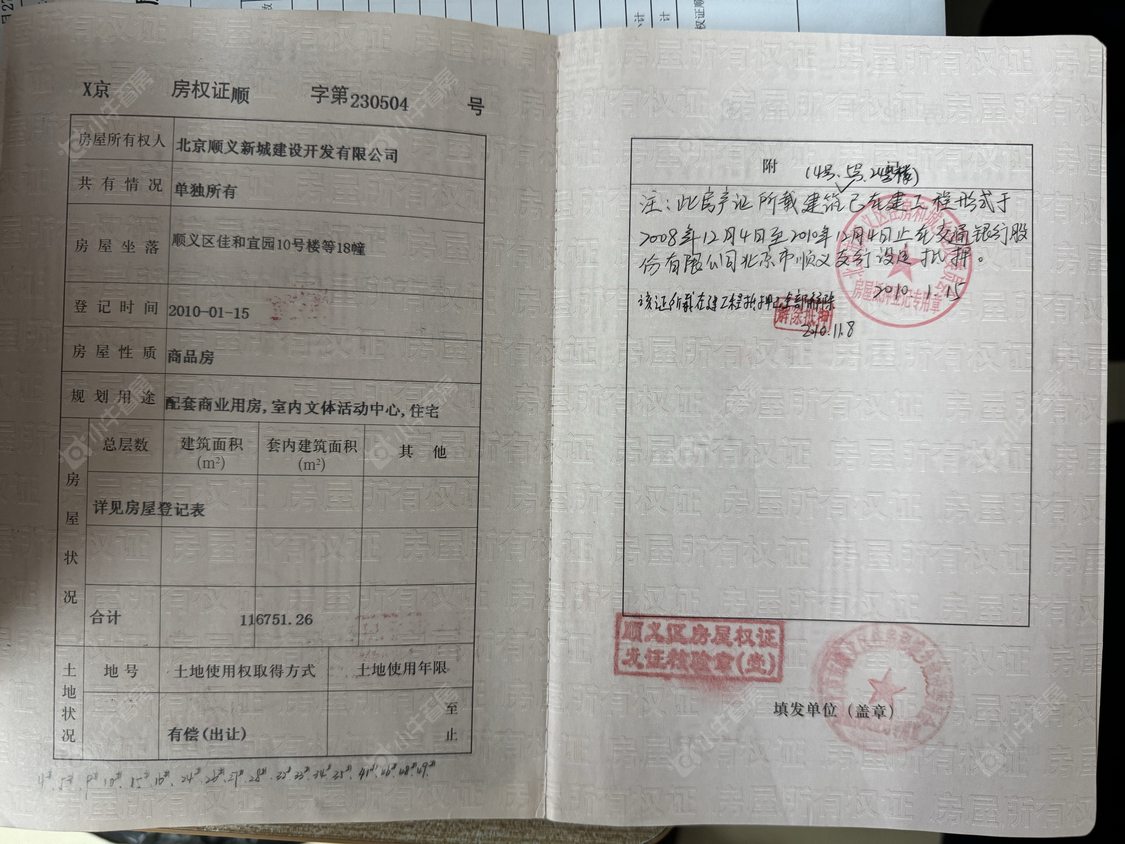 X京 房权证顺 字第230504 号
房屋所有权人 北京顺义新城建设开发有限公司
共有情况 单独所有
房屋坐落 顺义区佳和宜园10号楼等18幢
登记时间 2010-01-15
房屋性质 商品房
规划用途 配套商业用房,室内文体活动中心,住宅
房屋状况
总层数 建筑面积(m²) 套内建筑面积(m²) 其他
详见房屋登记表
合计 116751.26
土地状况
地号 土地使用权取得方式 土地使用年限
有偿(出让) 至
止
附
注:此房产证所载建筑已在建工程形式于
2008年12月4日至2010年12月4日止在交通银行股
份有限公司北京市顺义支行设定抵押。
2010.1.15
该证所载在建工程抵押已全部解除
解除抵押
2010.11.8
房屋登记专用章
顺义区房屋权证
发证核验章
填发单位(盖章)
小牛看房